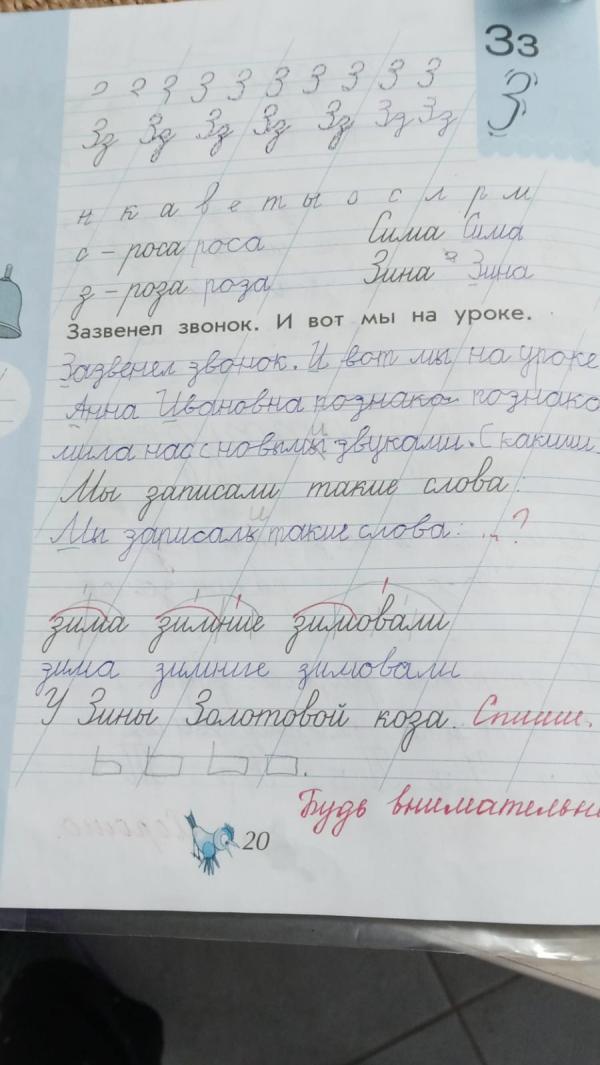 Зз
З
З З З З З З З З З З
Зз Зз Зз Зз Зз Зз Зз
н к а в е т ы о с л р м
с – роса роса Сима Сима
з – роза роза Зина Зина
Зазвенел звонок. И вот мы на уроке.
Зазвенел звонок. И вот мы на уроке
Анна Ивановна познако- познако
мила нас с новыми звуками. С какими
Мы записали такие слова:
Мы записали такие слова: ...?
зима зимние зимовали
зима зимние зимовали
У Зины Золотовой коза. Спиши.
Будь внимательн
Хорошо.
20